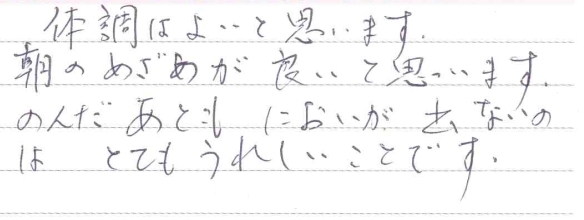 体調はよいと思います.
朝のめざめが良いと思います.
のんだあともにおいが出ないの
は とてもうれしいことです.